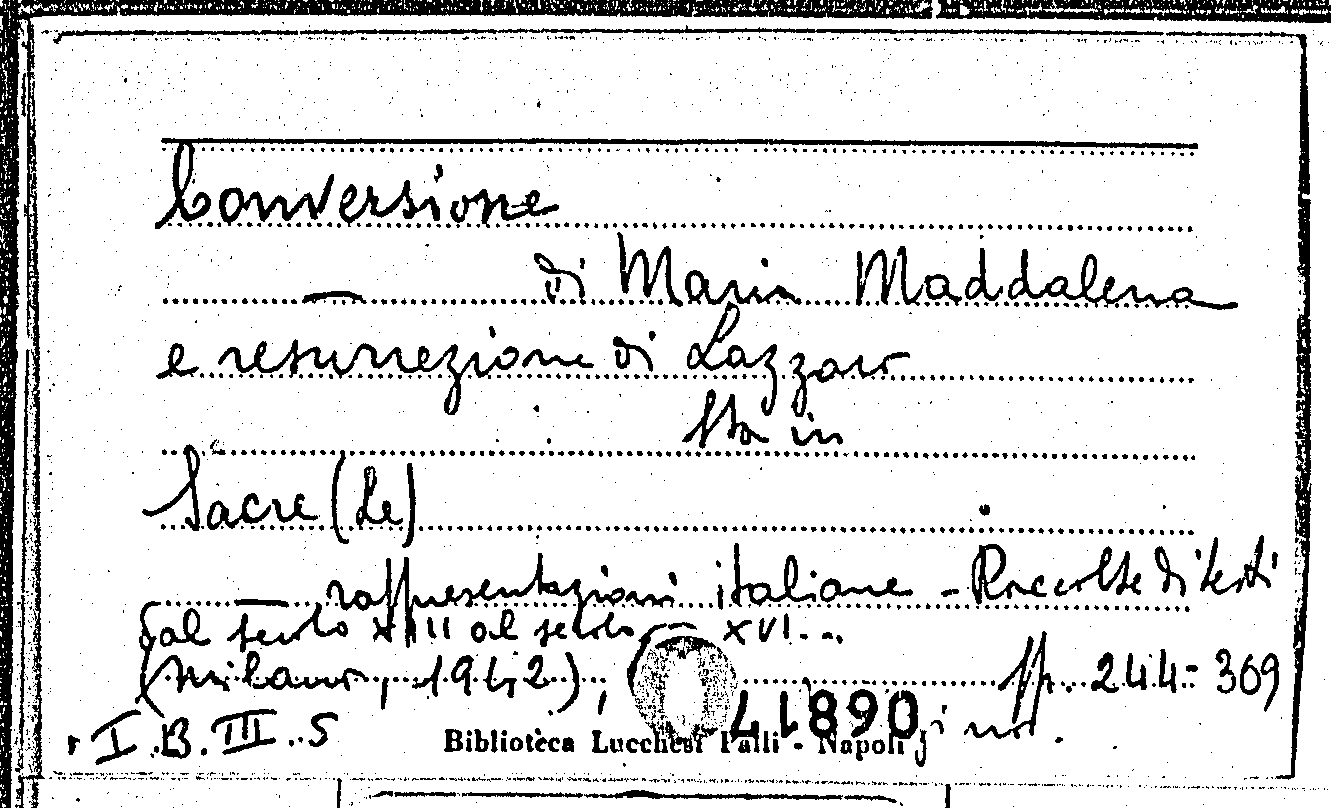 Conversione
— di Maria Maddalena
e resurrezione di Lazzaro
Sta in
Sacre (Le)
— rappresentazioni italiane - Raccolte di testi
dal secolo XIII al secolo XVI...
(Milano, 1942), pp. 244-309
I.B.III.5
Biblioteca Lucchesi Palli - Napoli